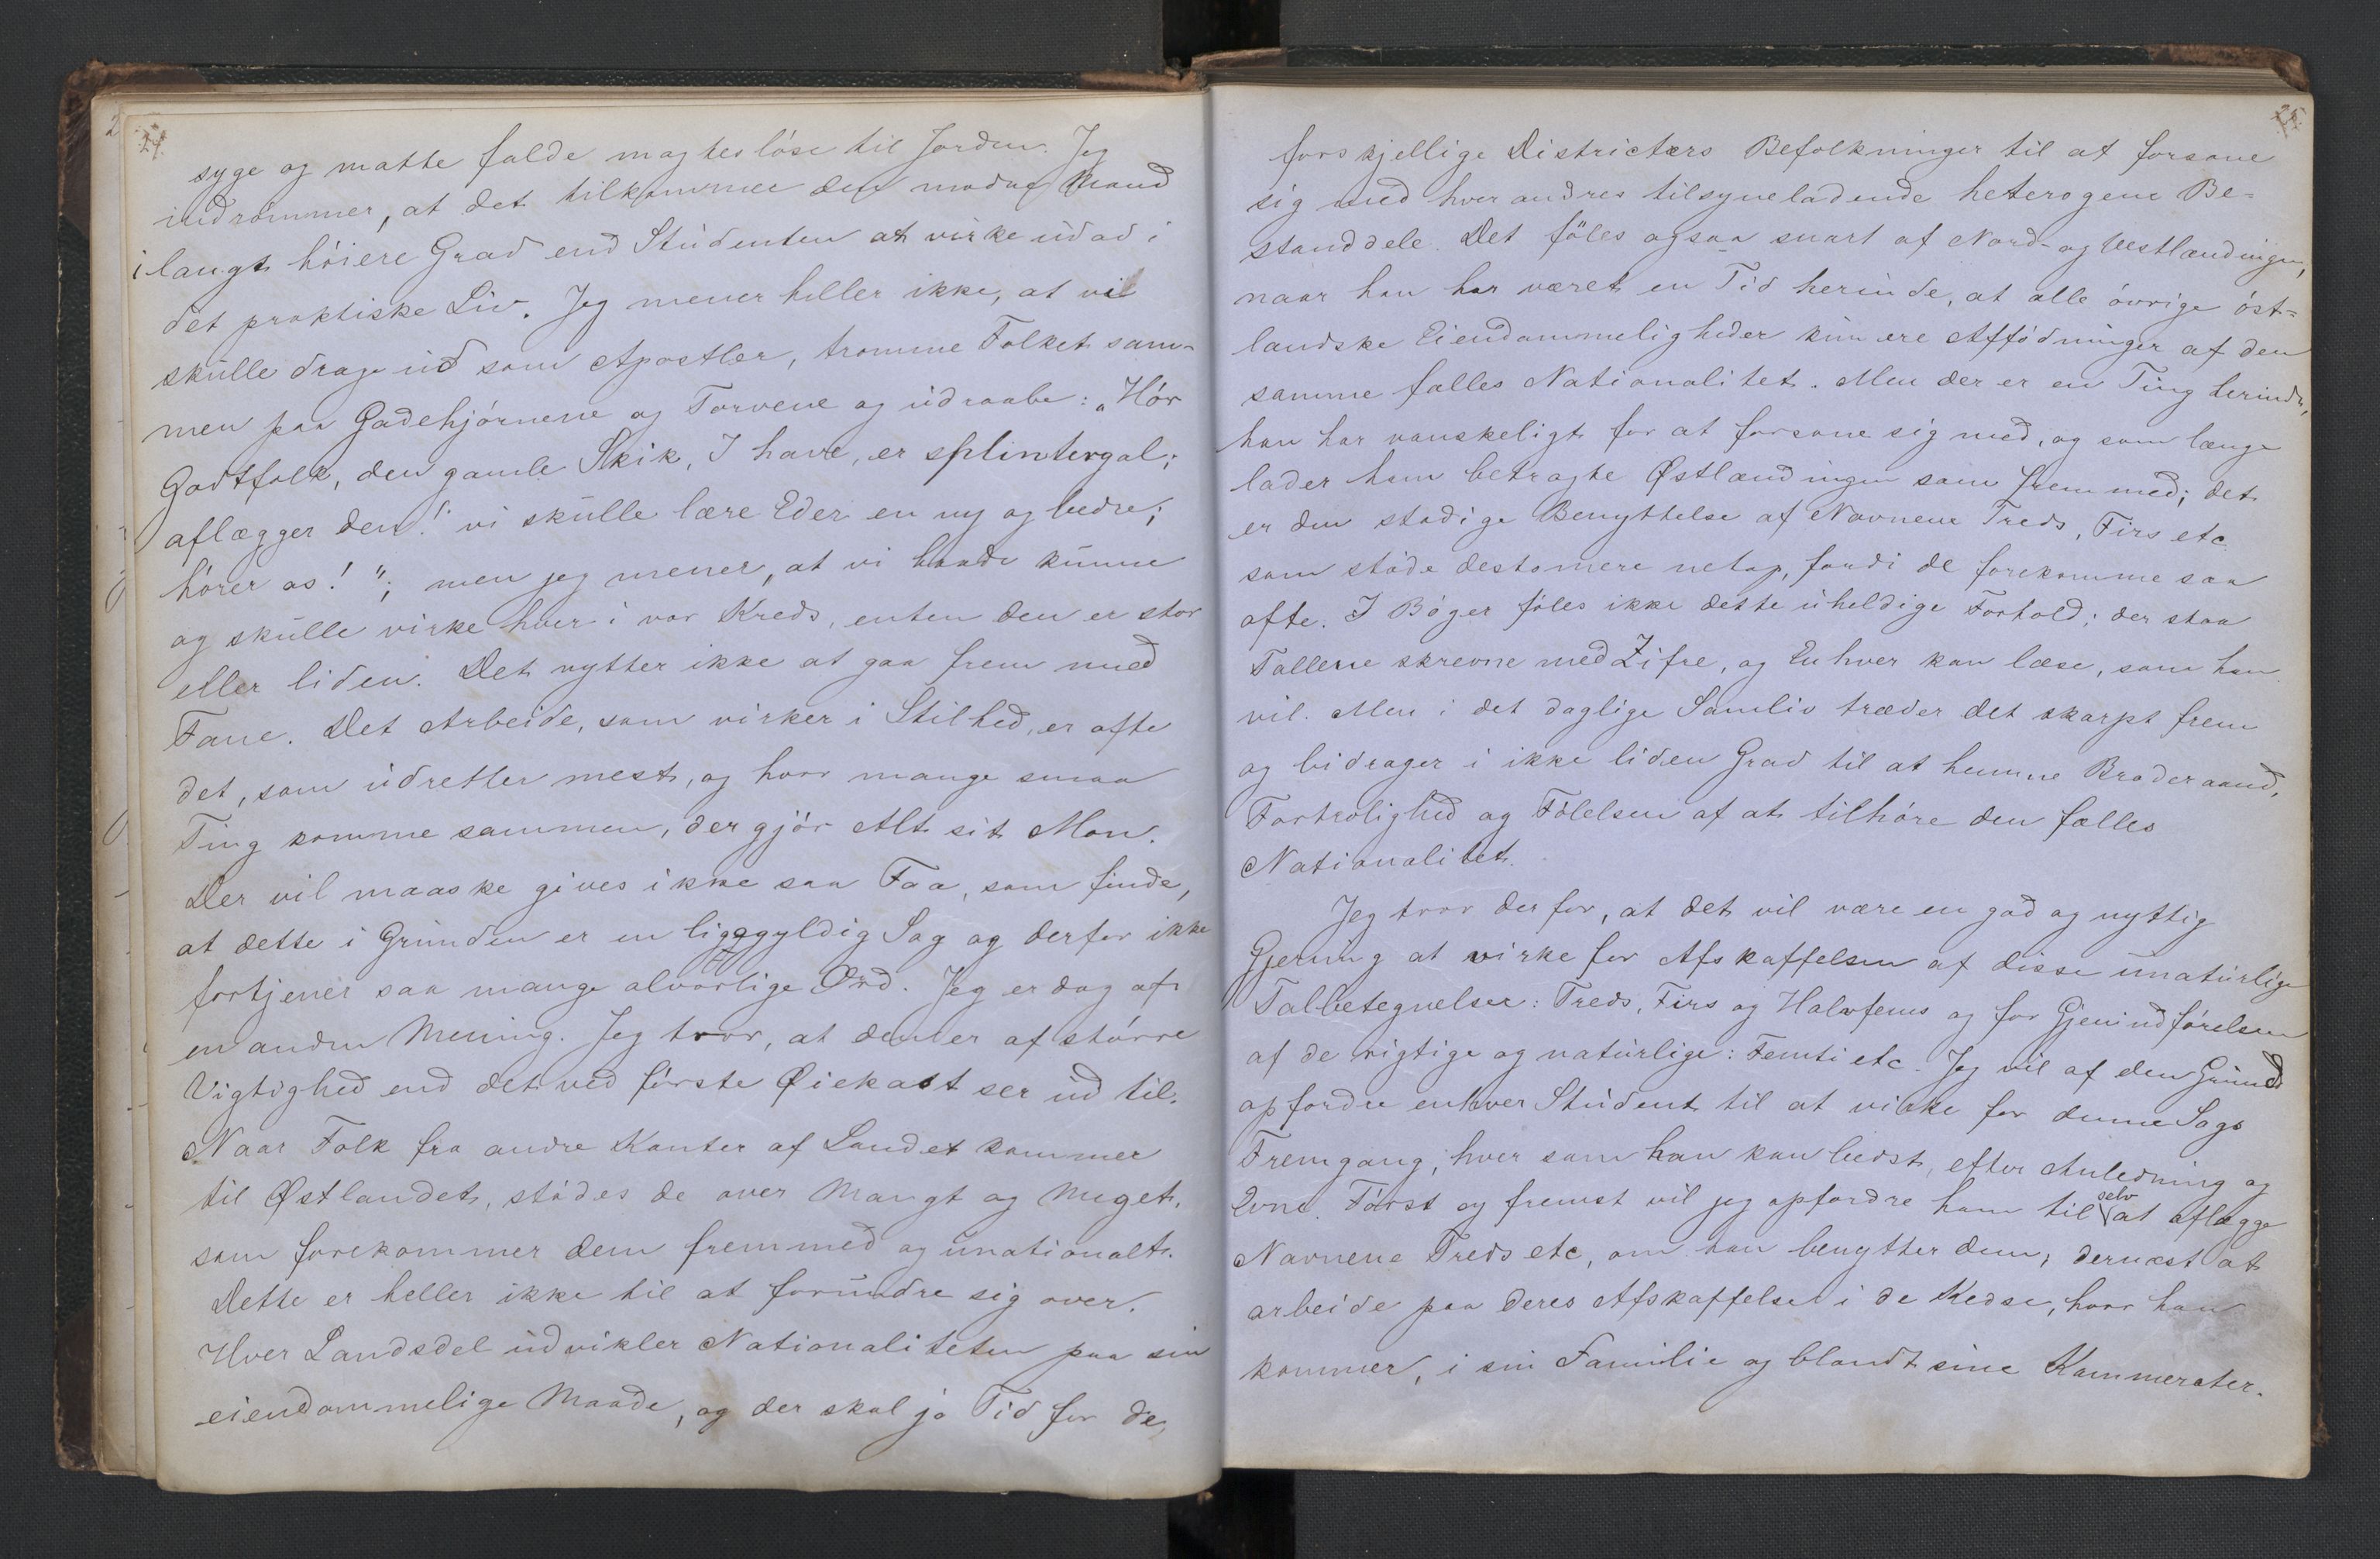 24.
syge og matte falde magtesløse til Jorden. Jeg
indrømmer, at det tilkommer den modne Mand
i langt høiere Grad end Studenten at virke udad i
det praktiske Liv. Jeg mener heller ikke, at vi
skulle drage ud som Apostler, tromme Folket sam-
men paa Gadehjørnene og Torvene og udraabe: „Hør
Godtfolk, den gamle Skik, I have, er splintergal;
aflægger den! vi skulle lære Eder en ny og bedre;
hører os!“; men jeg mener, at vi baade kunne
og skulle virke hver i vor Kreds, enten den er stor
eller liden. Det nytter ikke at gaa frem med
Fane. Det Arbeide, som virker i Stilhed, er ofte
det, som udretter mest, og hvor mange smaa
Ting komme sammen, der gjør Alt sit Mon.
Der vil maaske gives ikke saa Faa, som finde,
at dette i Grunden er en ligegyldig Sag og derfor ikke
fortjener saa mange alvorlige Ord. Jeg er dog af
en anden Mening. Jeg tror, at den er af større
Vigtighed end det ved første Øiekast ser ud til.
Naar Folk fra andre Kanter af Landet kommer
til Østlandet, stødes de over Mangt og Meget,
som forekommer dem fremmed og unationalt.
Dette er heller ikke til at forundre sig over.
Hver Landsdel udvikler Nationaliteten paa sin
eiendommelige Maade, og der skal jo Tid for de
25.
forskjellige Districters Befolkninger til at forsone
sig med hverandres tilsyneladende heterogene Be-
standdele. Det føles ogsaa snart af Nord- og Vestlændingen,
naar han har været en Tid herinde, at alle øvrige øst-
landske Eiendommeligheder kun ere Affødninger af den
samme fælles Nationalitet. Men der er en Ting herinde,
han har vanskeligt for at forsone sig med, og som længe
lader ham betragte Østlændingen som fremmed; det
er den stadige Benyttelse af Navnene Treds, Firs etc
som støde destomere netop, fordi de forekomme saa
ofte. I Bøger føles ikke dette uheldige Forhold; der staa
Tallene skrevne med Zifre, og Enhver kan læse, som han
vil. Men i det daglige Samliv træder det skarpt frem
og bidrager i ikke liden Grad til at hemme Broderaand,
Fortrolighed og Følelsen af at tilhøre den fælles
Nationalitet.
Jeg tror derfor, at det vil være en god og nyttig
Gjerning at virke for Afskaffelsen af disse unaturlige
Talbetegnelser: Treds, Firs og Halvfems og for Gjenindførelsen
af de rigtige og naturlige: Femti etc. Jeg vil af den Grund
opfordre enhver Student til at virke for denne Sags
Fremgang, hver som han kan bedst, efter Anledning og
Evne. Først og fremst vil jeg opfordre ham til selv at aflægge
Navnene Treds etc, om han benytter dem, dernæst at
arbeide paa deres Afskaffelse i de Kedse, hvor han
kommer, i sin Familie og blandt sine Kammerater.